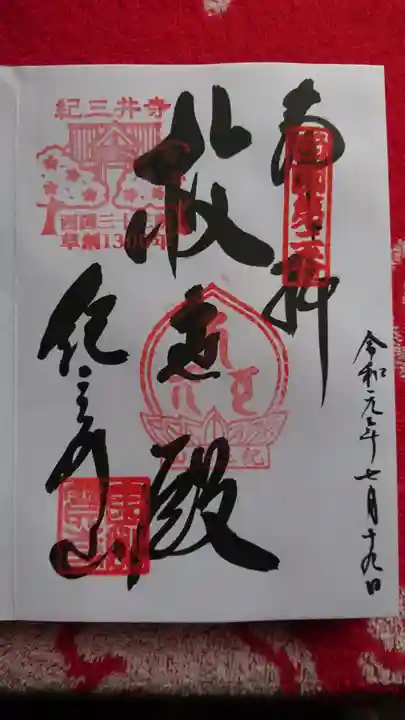 奉拝
令和元年七月十九日
救世殿
紀三井寺
西国三十三所
草創1300年
紀三井山